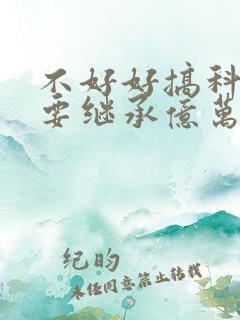 不好好搞科
要继承億萬
纪昀
未经同意禁止转载